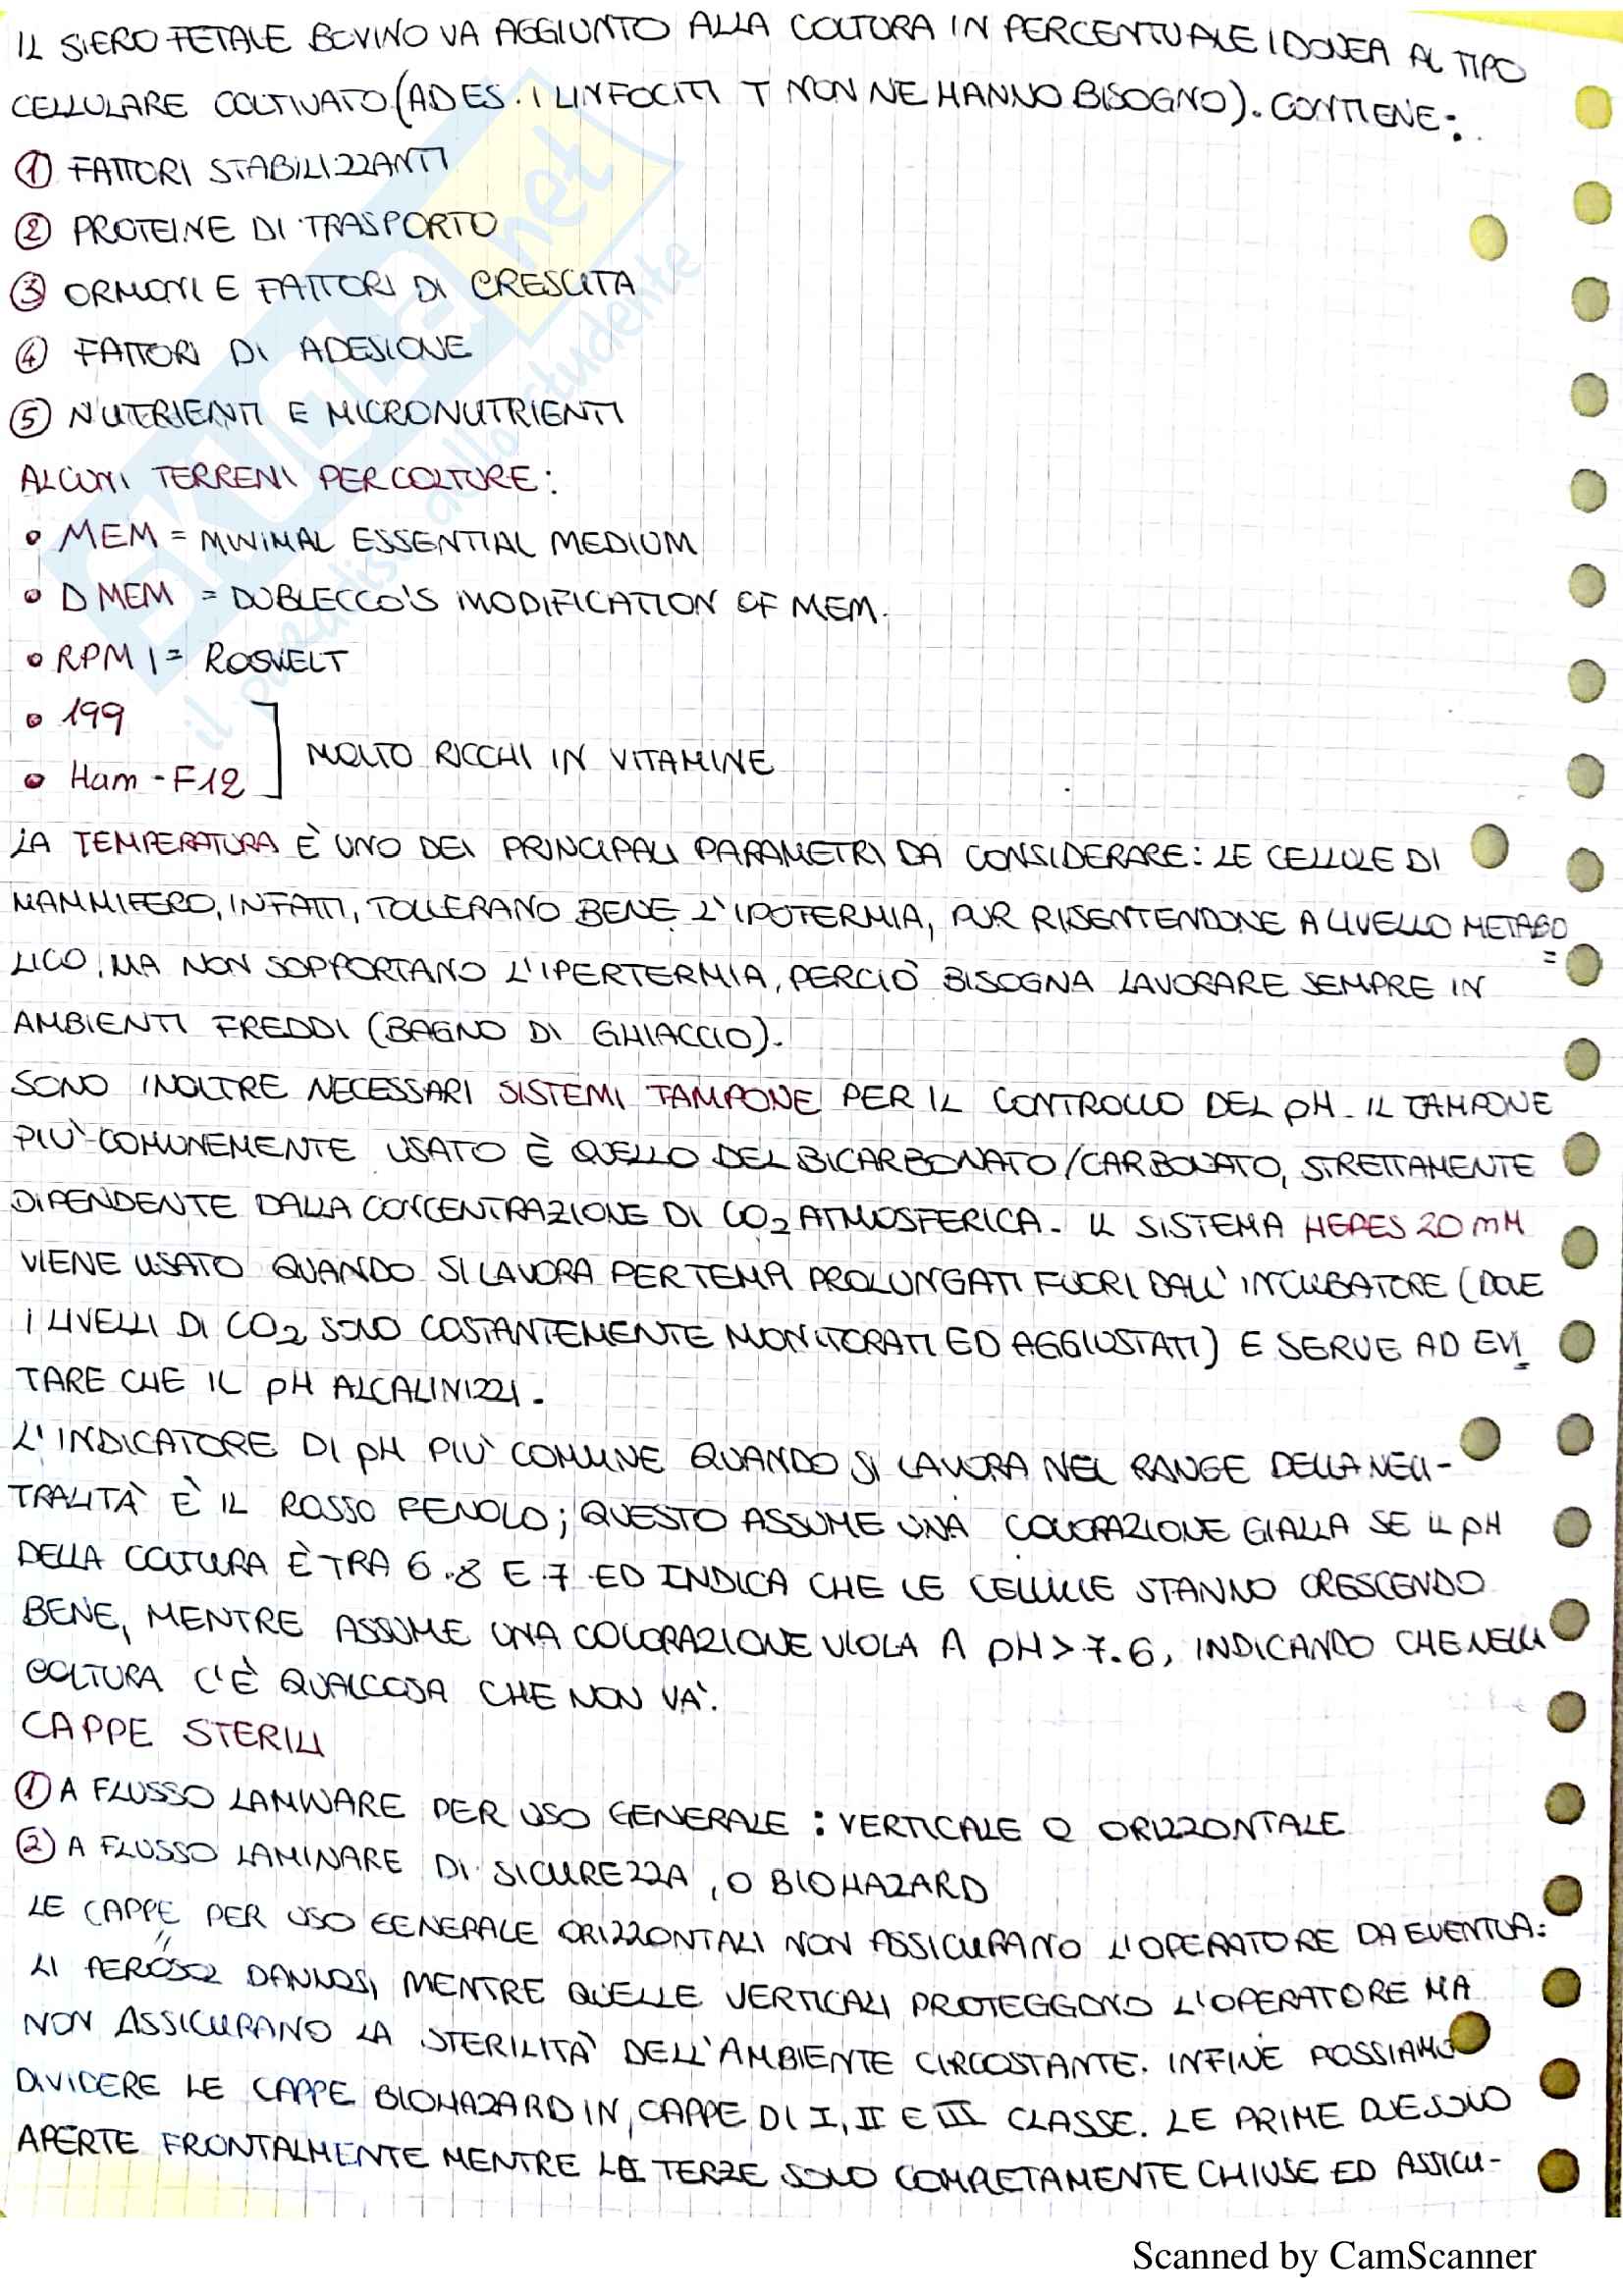 IL SIERO FETALE BOVINO VA AGGIUNTO ALLA COLTURA IN PERCENTUALE IDONEA AL TIPO
CELLULARE COLTIVATO (AD ES. I LINFOCITI T NON NE HANNO BISOGNO). CONTIENE:
① FATTORI STABILIZZANTI
② PROTEINE DI TRASPORTO
③ ORMONI E FATTORI DI CRESCITA
④ FATTORI DI ADESIONE
⑤ NUTRIENTI E MICRONUTRIENTI
ALCUNI TERRENI PER COLTURE:
• MEM = MINIMAL ESSENTIAL MEDIUM
• DMEM = DUBLECCO'S MODIFICATION OF MEM.
• RPMI = ROSWELT
• 199
MOLTO RICCHI IN VITAMINE
• Ham-F12
LA TEMPERATURA È UNO DEI PRINCIPALI PARAMETRI DA CONSIDERARE: LE CELLULE DI
MAMMIFERO, INFATTI, TOLLERANO BENE L'IPOTERMIA, PUR RISENTENDONE A LIVELLO METABO
=
LICO, MA NON SOPPORTANO L'IPERTERMIA, PERCIÒ BISOGNA LAVORARE SEMPRE IN
AMBIENTI FREDDI (BAGNO DI GHIACCIO).
SONO INOLTRE NECESSARI SISTEMI TAMPONE PER IL CONTROLLO DEL pH. IL TAMPONE
PIÙ COMUNEMENTE USATO È QUELLO DEL BICARBONATO/CARBONATO, STRETTAMENTE
DIPENDENTE DALLA CONCENTRAZIONE DI CO2 ATMOSFERICA. IL SISTEMA HEPES 20 mM
VIENE USATO QUANDO SI LAVORA PER TEMPI PROLUNGATI FUORI DALL'INCUBATORE (DOVE
I LIVELLI DI CO2 SONO COSTANTEMENTE MONITORATI ED AGGIUSTATI) E SERVE AD EVI=
TARE CHE IL pH ALCALINIZZI.
L'INDICATORE DI pH PIÙ COMUNE QUANDO SI LAVORA NEL RANGE DELLA NEU-
TRALITÀ È IL ROSSO FENOLO; QUESTO ASSUME UNA COLORAZIONE GIALLA SE IL pH
DELLA COLTURA È TRA 6.8 E 7 ED INDICA CHE LE CELLULE STANNO CRESCENDO
BENE, MENTRE ASSUME UNA COLORAZIONE VIOLA A pH > 7.6, INDICANDO CHE NELLA
COLTURA C'È QUALCOSA CHE NON VA'.
CAPPE STERILI
① A FLUSSO LAMINARE PER USO GENERALE: VERTICALE O ORIZZONTALE
② A FLUSSO LAMINARE DI SICUREZZA, O BIOHAZARD
LE CAPPE PER USO GENERALE ORIZZONTALI NON ASSICURANO L'OPERATORE DA EVENTUA=
LI AEROSOL DANNOSI, MENTRE QUELLE VERTICALI PROTEGGONO L'OPERATORE MA
NON ASSICURANO LA STERILITÀ DELL'AMBIENTE CIRCOSTANTE. INFINE POSSIAMO
DIVIDERE LE CAPPE BIOHAZARD IN CAPPE DI I, II E III CLASSE. LE PRIME DUE SONO
APERTE FRONTALMENTE MENTRE LE TERZE SONO COMPLETAMENTE CHIUSE ED ASSICU-
SKUOLA.net
il paradiso dello studente
Scanned by CamScanner